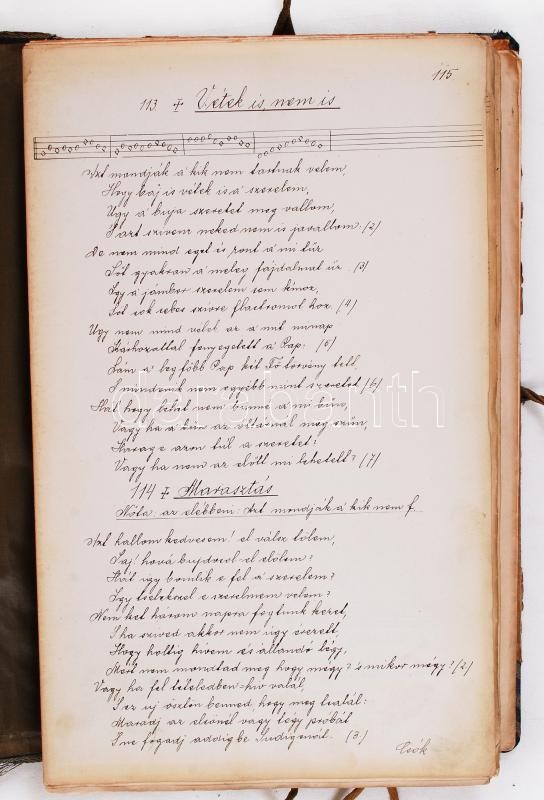 115
113. Vétek is nem is
Azt mondják a kik nem tartnak velem,
Hogy baj is vétek is á szerelem,
Ugy á buja szeretet meg vallom,
S azt szivem neked nem is javallom: (2)
De nem mind éget és ront á mi tűz
Sőt gyakran á meleg fájdalmat űz. (3)
Igy á jámbor szerelem sem kinoz,
Sőt sok sebes szivre flastromot hoz. (4)
Ugy nem mind vétek az á mit minap
Kárhozattal fenyegetett á Pap: (5)
Lám á legfőbb Pap két Fő törvény tett,
S mindenik nem egyébb mint szeretet (6)
Hát hogy lehet nem bünné á mi
Vagy ha á bün az oltárnál meg szün,
Harag e azon túl á szeretet?
Vagy ha nem az előtt mi lehetett? (7)
114 Marasztás
Nóta: az elébbeni: Azt mondják á kik nem f...
Azt hallom kedvesem! el válsz tőlem,
Jaj! hová bujdosol el előlem?
Hát ugy bomlik e fel á szerelem?
Igy velem?
Nem két három napra fogtunk kezet,
S ha szived akkor nem úgy érzett,
Hogy holtig hivem és állandó légy,
Mért nem mondtad meg hogy mégy? 's mikor mégy? (2)
Vagy ha fel tételedben hiv valál,
S ez uj ösztön benned, hogy meg talál:
Maradj az elsőnél vagy tégy próbát
S ne fogadj addig be (3.)
Csók
darabanth